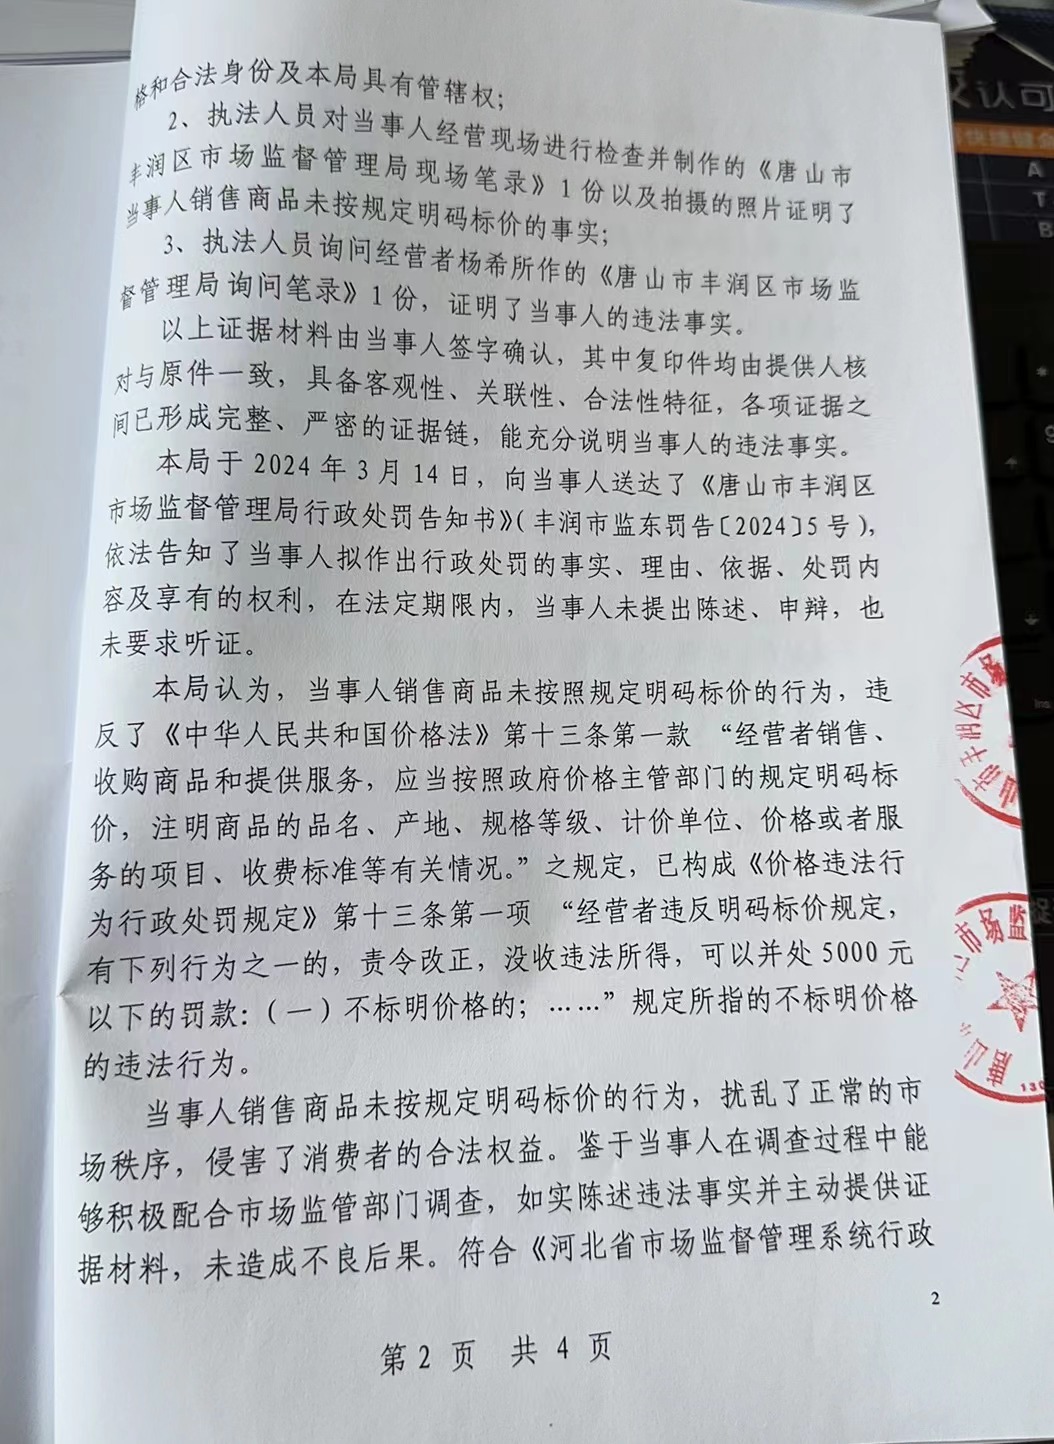 格和合法身份及本局具有管辖权；
2、执法人员对当事人经营现场进行检查并制作的《唐山市
丰润区市场监督管理局现场笔录》1 份以及拍摄的照片证明了
当事人销售商品未按规定明码标价的事实；
3、执法人员询问经营者杨希所作的《唐山市丰润区市场监
督管理局询问笔录》1 份，证明了当事人的违法事实。
以上证据材料由当事人签字确认，其中复印件均由提供人核
对与原件一致，具备客观性、关联性、合法性特征，各项证据之
间已形成完整、严密的证据链，能充分说明当事人的违法事实。
本局于 2024 年 3 月 14 日，向当事人送达了《唐山市丰润区
市场监督管理局行政处罚告知书》（丰润市监东罚告〔2024〕5 号），
依法告知了当事人拟作出行政处罚的事实、理由、依据、处罚内
容及享有的权利，在法定期限内，当事人未提出陈述、申辩，也
未要求听证。
本局认为，当事人销售商品未按照规定明码标价的行为，违
反了《中华人民共和国价格法》第十三条第一款 “经营者销售、
收购商品和提供服务，应当按照政府价格主管部门的规定明码标
价，注明商品的品名、产地、规格等级、计价单位、价格或者服
务的项目、收费标准等有关情况。”之规定，已构成《价格违法行
为行政处罚规定》第十三条第一项 “经营者违反明码标价规定，
有下列行为之一的，责令改正，没收违法所得，可以并处 5000 元
以下的罚款：（一）不标明价格的；……”规定所指的不标明价格
的违法行为。
当事人销售商品未按规定明码标价的行为，扰乱了正常的市
场秩序，侵害了消费者的合法权益。鉴于当事人在调查过程中能
够积极配合市场监管部门调查，如实陈述违法事实并主动提供证
据材料，未造成不良后果。符合《河北省市场监督管理系统行政
2
第 2 页 共 4 页
认可
A
T
B
市丰润区市场
山
市场监
唐山
130